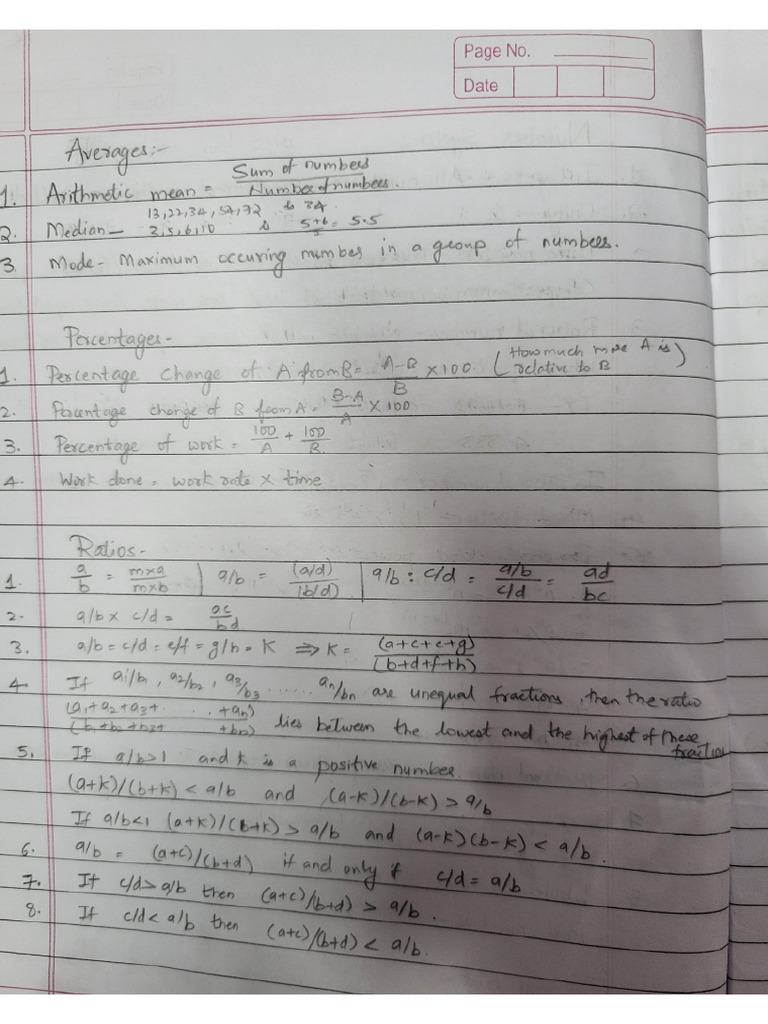 Page No.
Date
Averages:-
1. Arithmetic mean = Sum of numbers / Number of numbers.
2. Median - 13,22,34,54,72 is 34
3,5,6,10 is 5+6/2 = 5.5
3. Mode - Maximum occuring number in a group of numbers.
Percentages -
1. Percentage change of A from B = A-B/B × 100 (How much more A is relative to B)
2. Percentage change of B from A = B-A/A × 100
3. Percentage of work = 100/A + 100/B
4. Work done = work rate × time
Ratios -
1. a/b = m×a/m×b | a/b = (a/d)/(b/d) | a/b : c/d = a/b/c/d = ad/bc
2. a/b × c/d = ac/bd
3. a/b = c/d = e/f = g/h = K ⇒ K = (a+c+e+g)/(b+d+f+h)
4. If a1/b1, a2/b2, a3/b3 ...... an/bn are unequal fractions, then the ratio
(a1+a2+a3+ ... +an)/(b1+b2+b3+ +bn) lies between the lowest and the highest of these fraction
5. If a/b>1 and k is a positive number.
(a+k)/(b+k) < a/b and (a-k)/(b-k) > a/b
If a/b<1 (a+k)/(b+k) > a/b and (a-k)(b-k) < a/b.
6. a/b = (a+c)/(b+d) if and only if c/d = a/b
7. If c/d > a/b then (a+c)/b+d) > a/b.
8. If c/d < a/b then (a+c)/(b+d) < a/b.